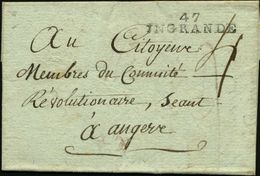 47
INGRANDE
Au Citoyens
Membres du Commité
Révolutionaire, Seant
à angers